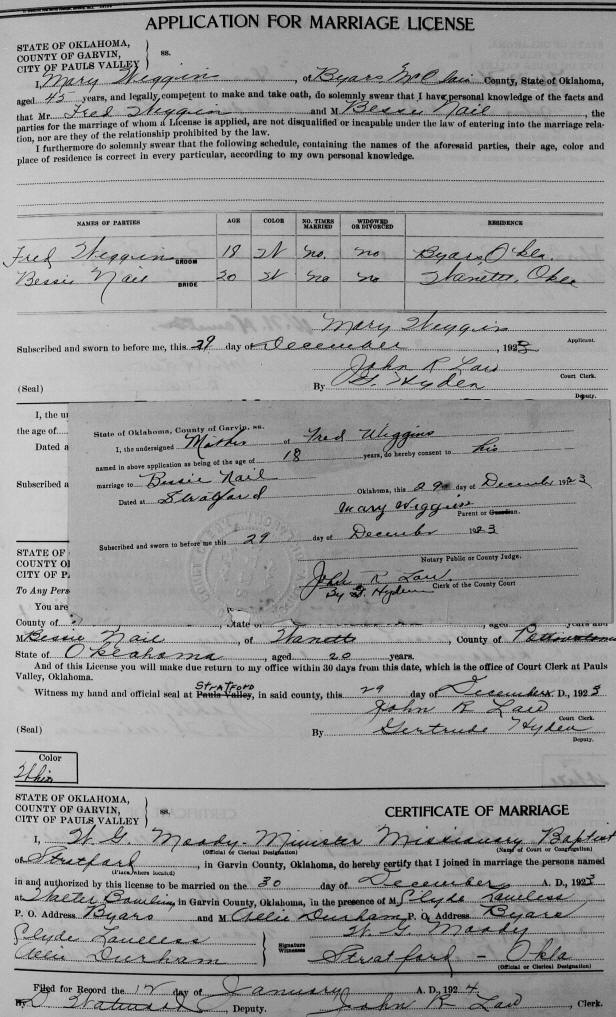 APPLICATION FOR MARRIAGE LICENSE
STATE OF OKLAHOMA,
COUNTY OF GARVIN,
CITY OF PAULS VALLEY
ss.
I, Mary Wiggin, of Byars McClain County, State of Oklahoma,
aged 45 years, and legally competent to make and take oath, do solemnly swear that I have personal knowledge of the facts and
that Mr. Fred Wiggin and M Bessie Nail, the
parties for the marriage of whom a License is applied, are not disqualified or incapable under the law of entering into the marriage rela-
tion, nor are they of the relationship prohibited by the law.
I furthermore do solemnly swear that the following schedule, containing the names of the aforesaid parties, their age, color and
place of residence is correct in every particular, according to my own personal knowledge.
NAMES OF PARTIES AGE COLOR NO. TIMES MARRIED WIDOWED OR DIVORCED RESIDENCE
Fred Wiggin GROOM 18 W no. no Byars, Okla.
Bessie Nail BRIDE 20 W no no Wanette, Okla
Mary Wiggin
Subscribed and sworn to before me, this 29 day of December, 1923 Applicant.
John R Law
Court Clerk.
(Seal) By G. Hyden
Deputy.
I, the u
the age of
Dated a
Subscribed a
State of Oklahoma, County of Garvin, ss.
I, the undersigned Mother of Fred Wiggins
named in above application as being of the age of 18 years, do hereby consent to his
marriage to Bessie Nail
Dated at Stratford Oklahoma, this 29 day of December 1923
Mary Wiggins
Parent or Guardian.
Subscribed and sworn to before me this 29 day of December 1923
Notary Public or County Judge.
John R. Law
Clerk of the County Court
By G. Hyden
STATE OF
COUNTY O
CITY OF P
To Any Pers
You are
County of , State of , aged years and
M Bessie Nail, of Wanette, County of
State of Oklahoma, aged 20 years.
And of this License you will make due return to my office within 30 days from this date, which is the office of Court Clerk at Pauls
Valley, Oklahoma.
STRATFORD
Witness my hand and official seal at Pauls Valley, in said county, this 29 day of December A. D., 1923
John R Law
Court Clerk.
(Seal) By Gertrude Hyden
Deputy.
Color
White
STATE OF OKLAHOMA,
COUNTY OF GARVIN,
CITY OF PAULS VALLEY
ss.
CERTIFICATE OF MARRIAGE
I, W. G. Moody - Minister Missionary Baptist
(Official or Clerical Designation) (Name of Court or Congregation)
of Stratford, in Garvin County, Oklahoma, do hereby certify that I joined in marriage the persons named
(Place where located)
in and authorized by this license to be married on the 30 day of December A. D., 1923
at Walter, in Garvin County, Oklahoma, in the presence of M Clyde Lawless
P. O. Address Byars and M Allie Durham P. O. Address Byars
W. G. Moody
Clyde Lawless
Allie Durham
Signature Witnesses
Stratford - Okla
(Official or Clerical Designation)
Filed for Record the 12 day of January A. D., 1924.
By, Deputy. John R Law, Clerk.